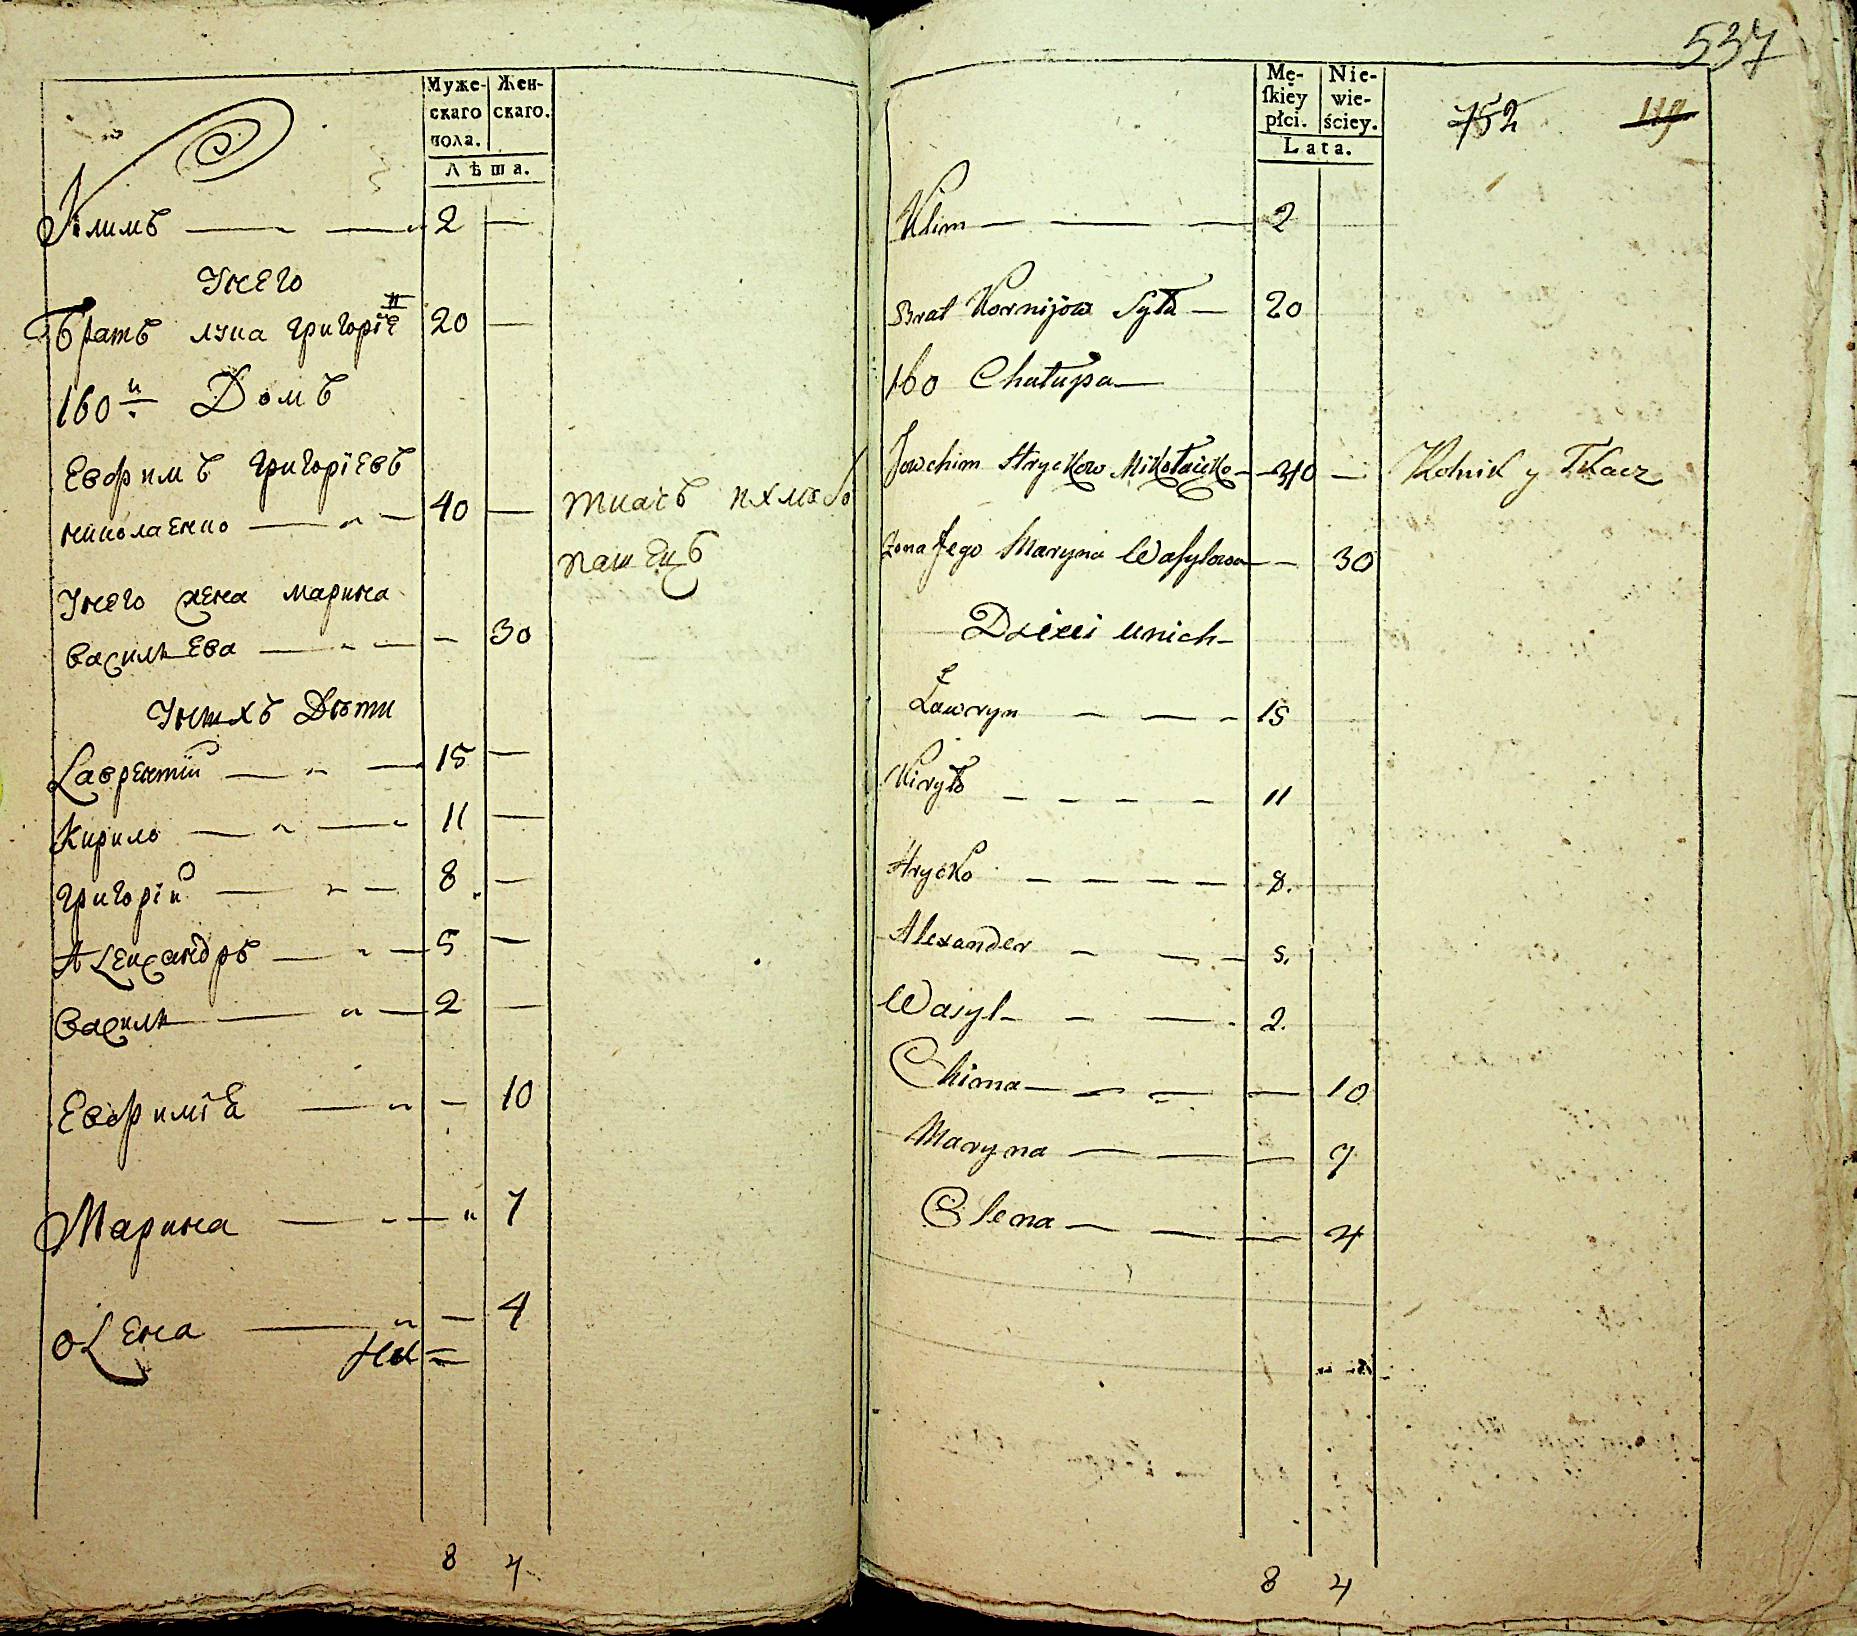 Муже-
скаго
пола.
Жен-
скаго.
Лѣта.
Климъ 2
Унего
Братъ лука григорїе 20
160й Домъ
Евфимъ григорїевъ
николаенко 40
ткасъ
пашецъ
Унего жена марина
васильева 30
Унихъ Дѣти
Lаврентїй 15
Кирило 11
григорїй 8
АLександръ 5
василь 2
Евфимїа 10
Марина 7
оLена 4
8 4
537
752
119
Mę-
ſkiey
płci.
Nie-
wie-
ściey.
Lata.
Klim 2
Brat Kornijow Syła 20
160 Chałupa
Jowchim Hryckow Mikołaicko 40 Rolnik y Tkacz
Zona Jego Maryna Wasylowa 30
Dzieci unich
Ławryn 15
Kiryło 11
Hrycko 8.
Alexander 5.
Wasyl 2.
Chima 10
Maryna 7
Olena 4
8 4